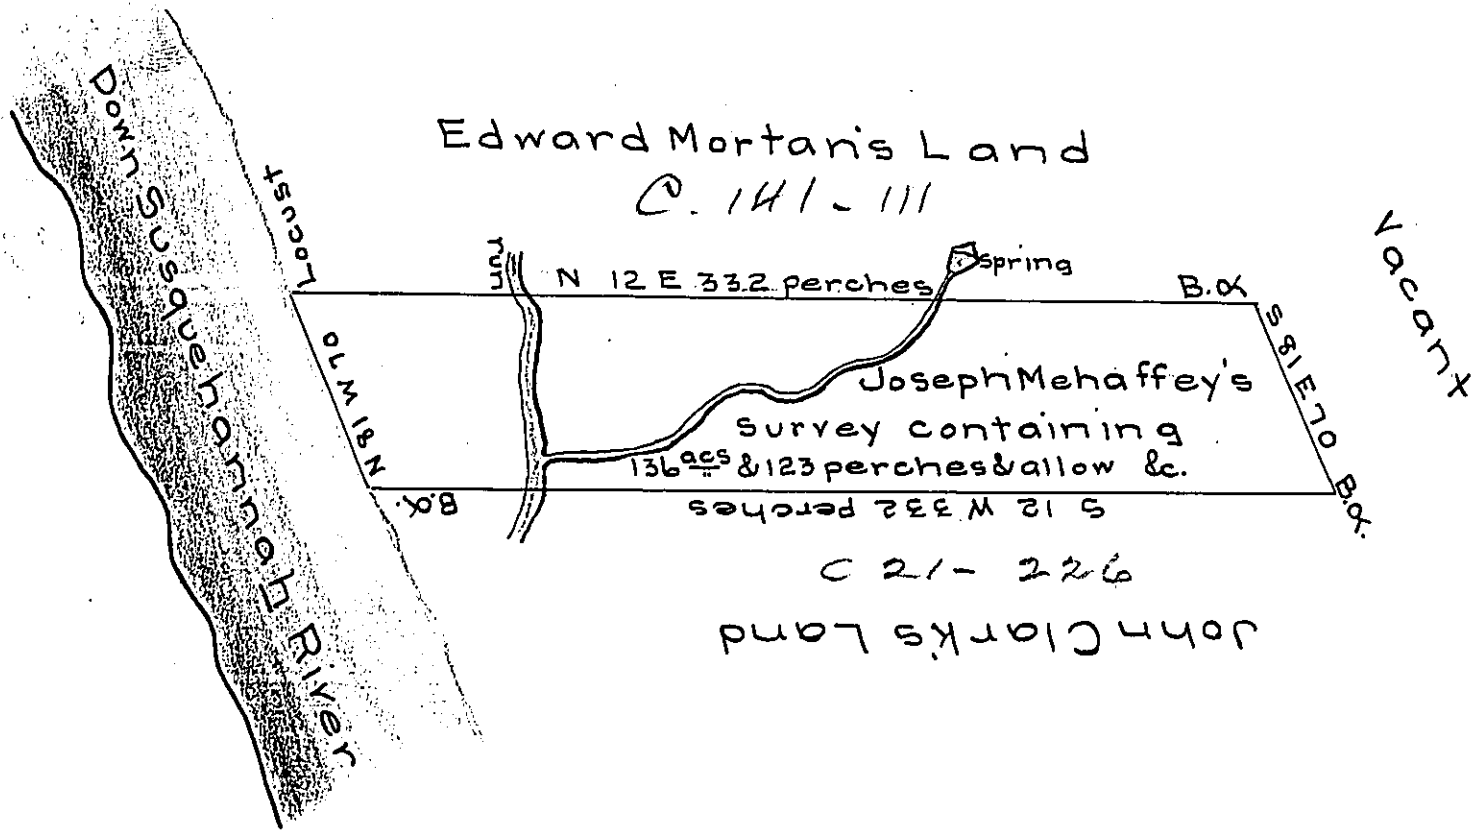 Down Susquehannah River
Edward Mortan's Land
C. 141-111
Vacant
Locust
run
N 12 E 332 perches
Spring
B.O.
S 81 E 70
N 81 W 70
Joseph Mehaffey's
Survey containing
136 acs & 123 perches & allow &c.
B.O.
S 12 W 332 perches
B.O.
C 21-226
John Clark's Land